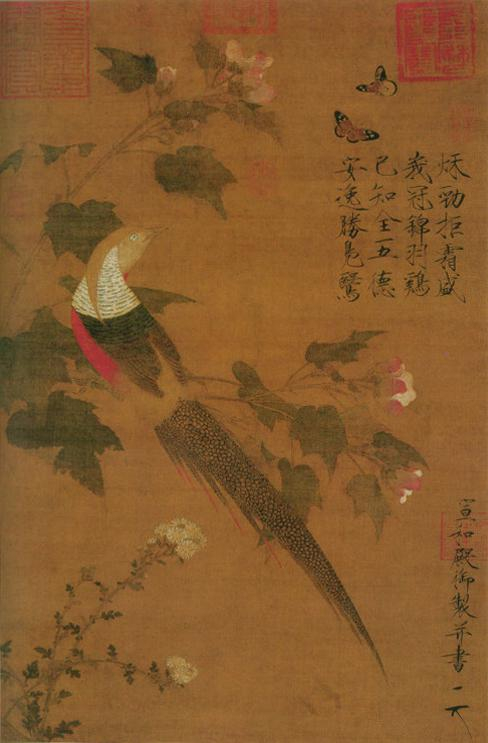 秌勁拒霜盛
峩冠錦羽鷄
已知全五德
安逸勝鳬鷖
宣和殿御製并書